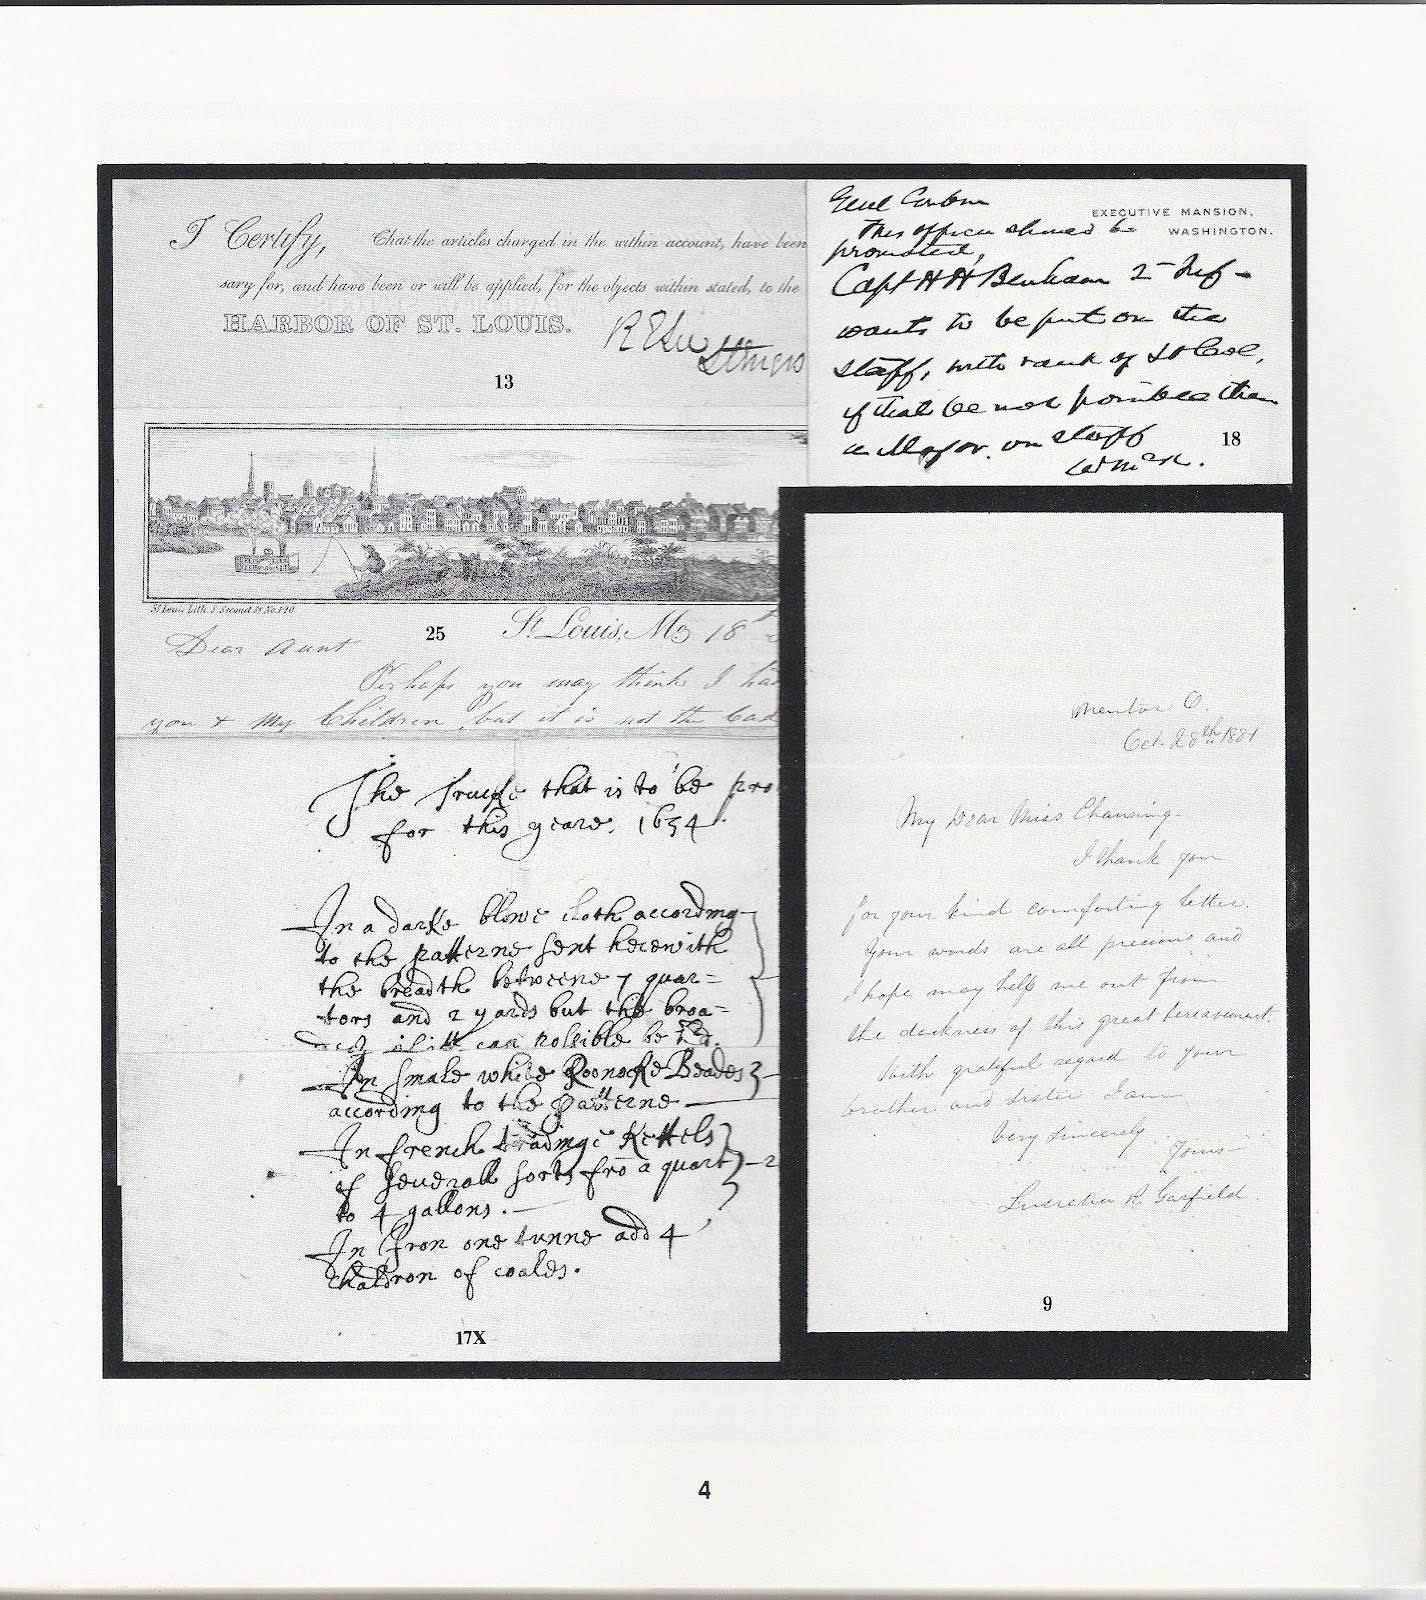 I Certify, That the articles charged in the within account, have been
sary for, and have been or will be applied, for the objects within stated, to the
HARBOR OF ST. LOUIS.
R E Lee
Lt Engrs
13
EXECUTIVE MANSION,
WASHINGTON.
Genl Corbin
This officer should be
promoted,
Capt H H Benham 2 Inf -
wants to be put on the
staff, with rank of Lt Col,
if that be not possible then
a Major on staff
WMcK.
18
St Louis Lith. S. Second St. No. 140.
25
St Louis, Mo 18th
Dear Aunt
Perhaps you may think I had
you & my Children but it is not the Cad
The Trucke that is to be pro
for this yeare. 1654
In a darke blewe cloth according
to the patterne sent herewith
the breadth betweene 7 quar=
ters and 2 yards but the broa=
der it can possible be
In smale white Roonoke Beades
according to the patterne
In french tradinge Kettels
of severall sorts fro a quart - 2
to 4 gallons.
In Iron one tunne add 4
chaldron of coales.
17X
Mentor O.
Oct. 28th 1881
My Dear Miss Channing-
I thank you
for your kind comforting letter.
Your words are all precious and
I hope may help me out from
the darkness of this great bereavement.
With grateful regard to your
brother and sister I am
Very sincerely
Yours-
Lucretia R. Garfield.
9
4